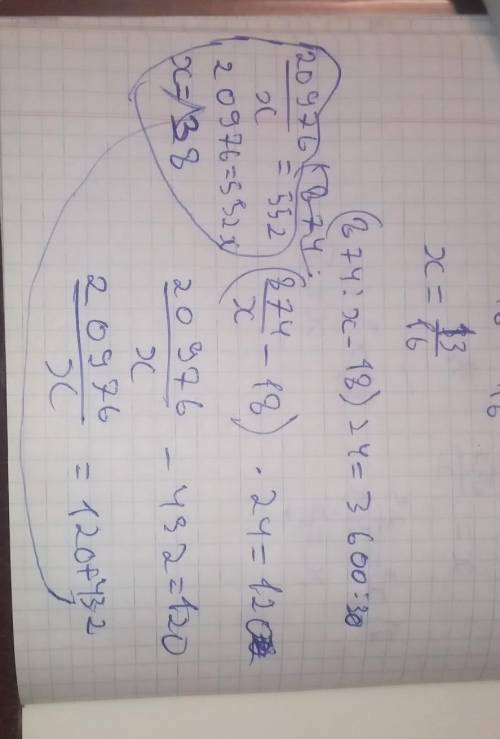 16
x = 13/16
(874 : x - 18) 24 = 3600 : 30
(874/x - 18) · 24 = 120
20976/x - 432 = 120
20976/x = 120 + 432
(874 :
20976/x = 552
20976 = 552x
x = 38